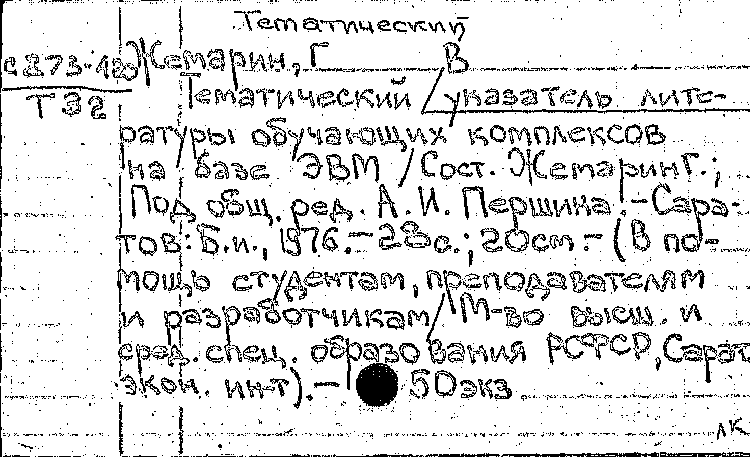 Тематический
с273.430 Жемарин, Г В
Т 32 Тематический /указатель лите-
ратуры обучающих комплексов
на базе ЭВМ /Сост. Жемарин Г.;
Под общ. ред. А.И. Першина.-Сара-
тов: Б.и., 1976.-28с.; 20см.-(В по-
мощь студентам, преподавателям
и разработчикам/М-во высш. и
сред. спец. образования РСФСР, Сарат.
экон. ин-т).- 50экз
лк